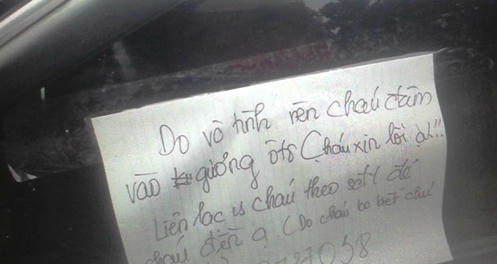 Do vô tình nên cháu đâm
vào gương ôtô Cháu xin lỗi ạ!..
Liên lạc vs cháu theo sđt để
cháu đền ạ (Do cháu ko biết chú
27058